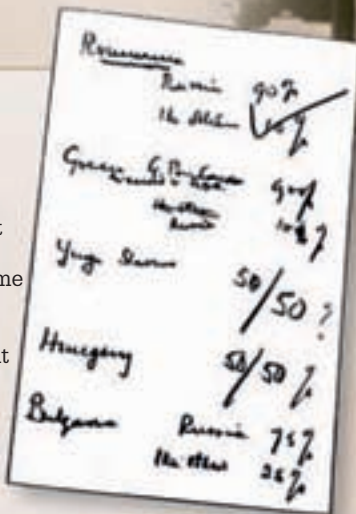 Roumania
Russia 90%
The others 10%
Greece G. Britain 90%
Russia 10%
Yugoslavia
50/50 %
Hungary 50/50 %
Bulgaria Russia 75%
the others 25%
t
me
t